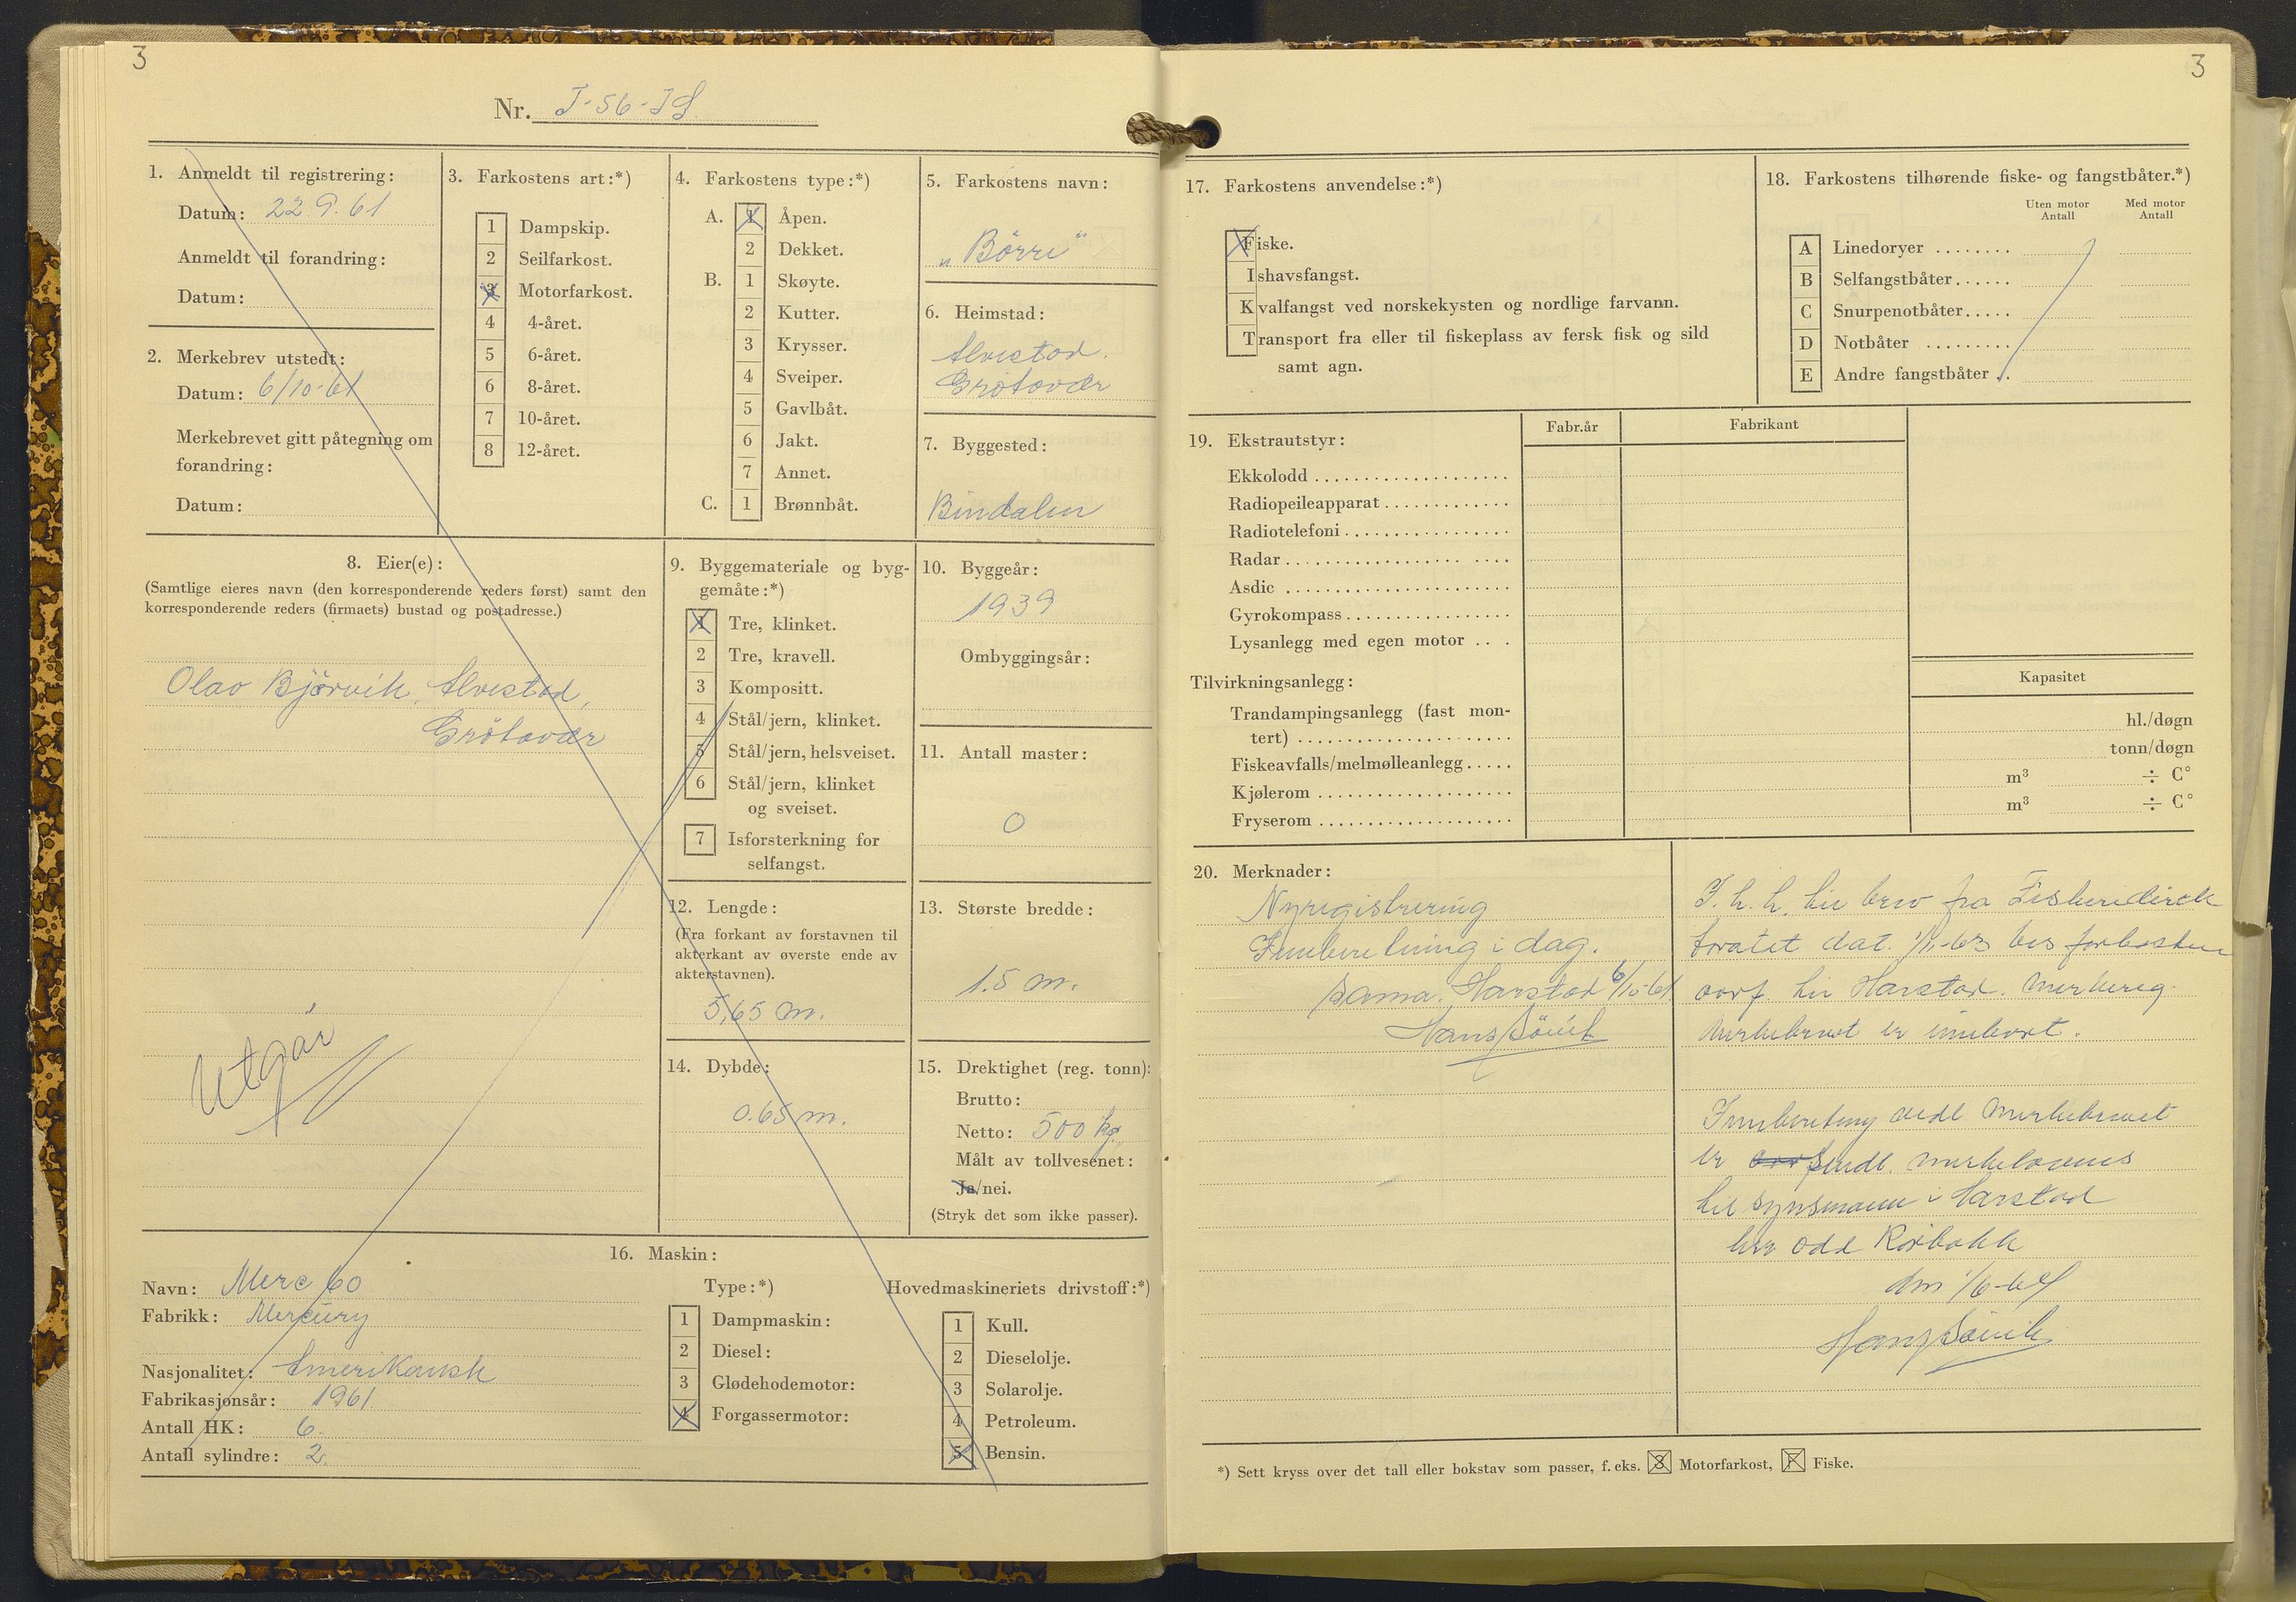 3
Nr. T-56-IS
1. Anmeldt til registrering:
Datum: 22 9. 61
Anmeldt til forandring:
Datum:
2. Merkebrev utstedt:
Datum: 6/10-61
Merkebrevet gitt påtegning om
forandring:
Datum:
3. Farkostens art:*)
1 Dampskip.
2 Seilfarkost.
3 Motorfarkost.
4 4-året.
5 6-året.
6 8-året.
7 10-året.
8 12-året.
4. Farkostens type:*)
A. 1 Åpen.
2 Dekket.
B. 1 Skøyte.
2 Kutter.
3 Krysser.
4 Sveiper.
5 Gavlbåt.
6 Jakt.
7 Annet.
C. 1 Brønnbåt.
5. Farkostens navn:
„Börre"
6. Heimstad:
Alvestad.
Grötavær
7. Byggested:
Bindalen
8. Eier(e):
(Samtlige eieres navn (den korresponderende reders først) samt den
korresponderende reders (firmaets) bustad og postadresse.)
Olav Björvik, Alvestad,
Grötavær
Utgår
9. Byggemateriale og byg-
gemåte:*)
1 Tre, klinket.
2 Tre, kravell.
3 Kompositt.
4 Stål/jern, klinket.
5 Stål/jern, helsveiset.
6 Stål/jern, klinket
og sveiset.
7 Isforsterkning for
selfangst.
10. Byggeår:
1939
Ombyggingsår:
11. Antall master:
0
12. Lengde:
(Fra forkant av forstavnen til
akterkant av øverste ende av
akterstavnen).
5,65 m.
13. Største bredde:
1.5 m.
14. Dybde:
0.65 m.
15. Drektighet (reg. tonn):
Brutto:
Netto: 500 kg.
Målt av tollvesenet:
Ja/nei.
(Stryk det som ikke passer).
16. Maskin:
Navn: Merc 60
Fabrikk: Mercury
Nasjonalitet: Amerikansk
Fabrikasjonsår: 1961
Antall HK: 6.
Antall sylindre: 2.
Type:*)
1 Dampmaskin:
2 Diesel:
3 Glødehodemotor:
4 Forgassermotor:
Hovedmaskineriets drivstoff:*)
1 Kull.
2 Dieselolje.
3 Solarolje.
4 Petroleum.
5 Bensin.
3
17. Farkostens anvendelse:*)
Fiske.
Ishavsfangst.
Kvalfangst ved norskekysten og nordlige farvann.
Transport fra eller til fiskeplass av fersk fisk og sild
samt agn.
18. Farkostens tilhørende fiske- og fangstbåter.*)
Uten motor Med motor
Antall Antall
A Linedoryer ........
B Selfangstbåter......
C Snurpenotbåter.....
D Notbåter .........
E Andre fangstbåter ..
19. Ekstrautstyr:
Fabr.år Fabrikant
Ekkolodd ....................
Radiopeileapparat .............
Radiotelefoni .................
Radar .................. ....
Asdic .......................
Gyrokompass .................
Lysanlegg med egen motor .. .
Tilvirkningsanlegg:
Kapasitet
Trandampingsanlegg (fast mon-
tert) ...................... hl./døgn
Fiskeavfalls/melmølleanlegg ..... tonn/døgn
Kjølerom .................... m³ ÷ C°
Fryserom .................... m³ ÷ C°
20. Merknader:
Nyregistrering
Innberetning i dag.
Sama. Harstad 6/10-61
Hans Sövik
I. h. h. til brev fra Fiskeridirek
toratet dat. 1/11-63 bes farkosten
ovf. til Harstad. merkereg.
Merkebrevet er innbert.
Innberetning vedl. merkebrevet
er sendt. merkelovens
til synsmann i Harstad
herr Odd Rörbakk
den 1/6-64
Hans Sövik
*) Sett kryss over det tall eller bokstav som passer, f. eks. 3 Motorfarkost, F Fiske.